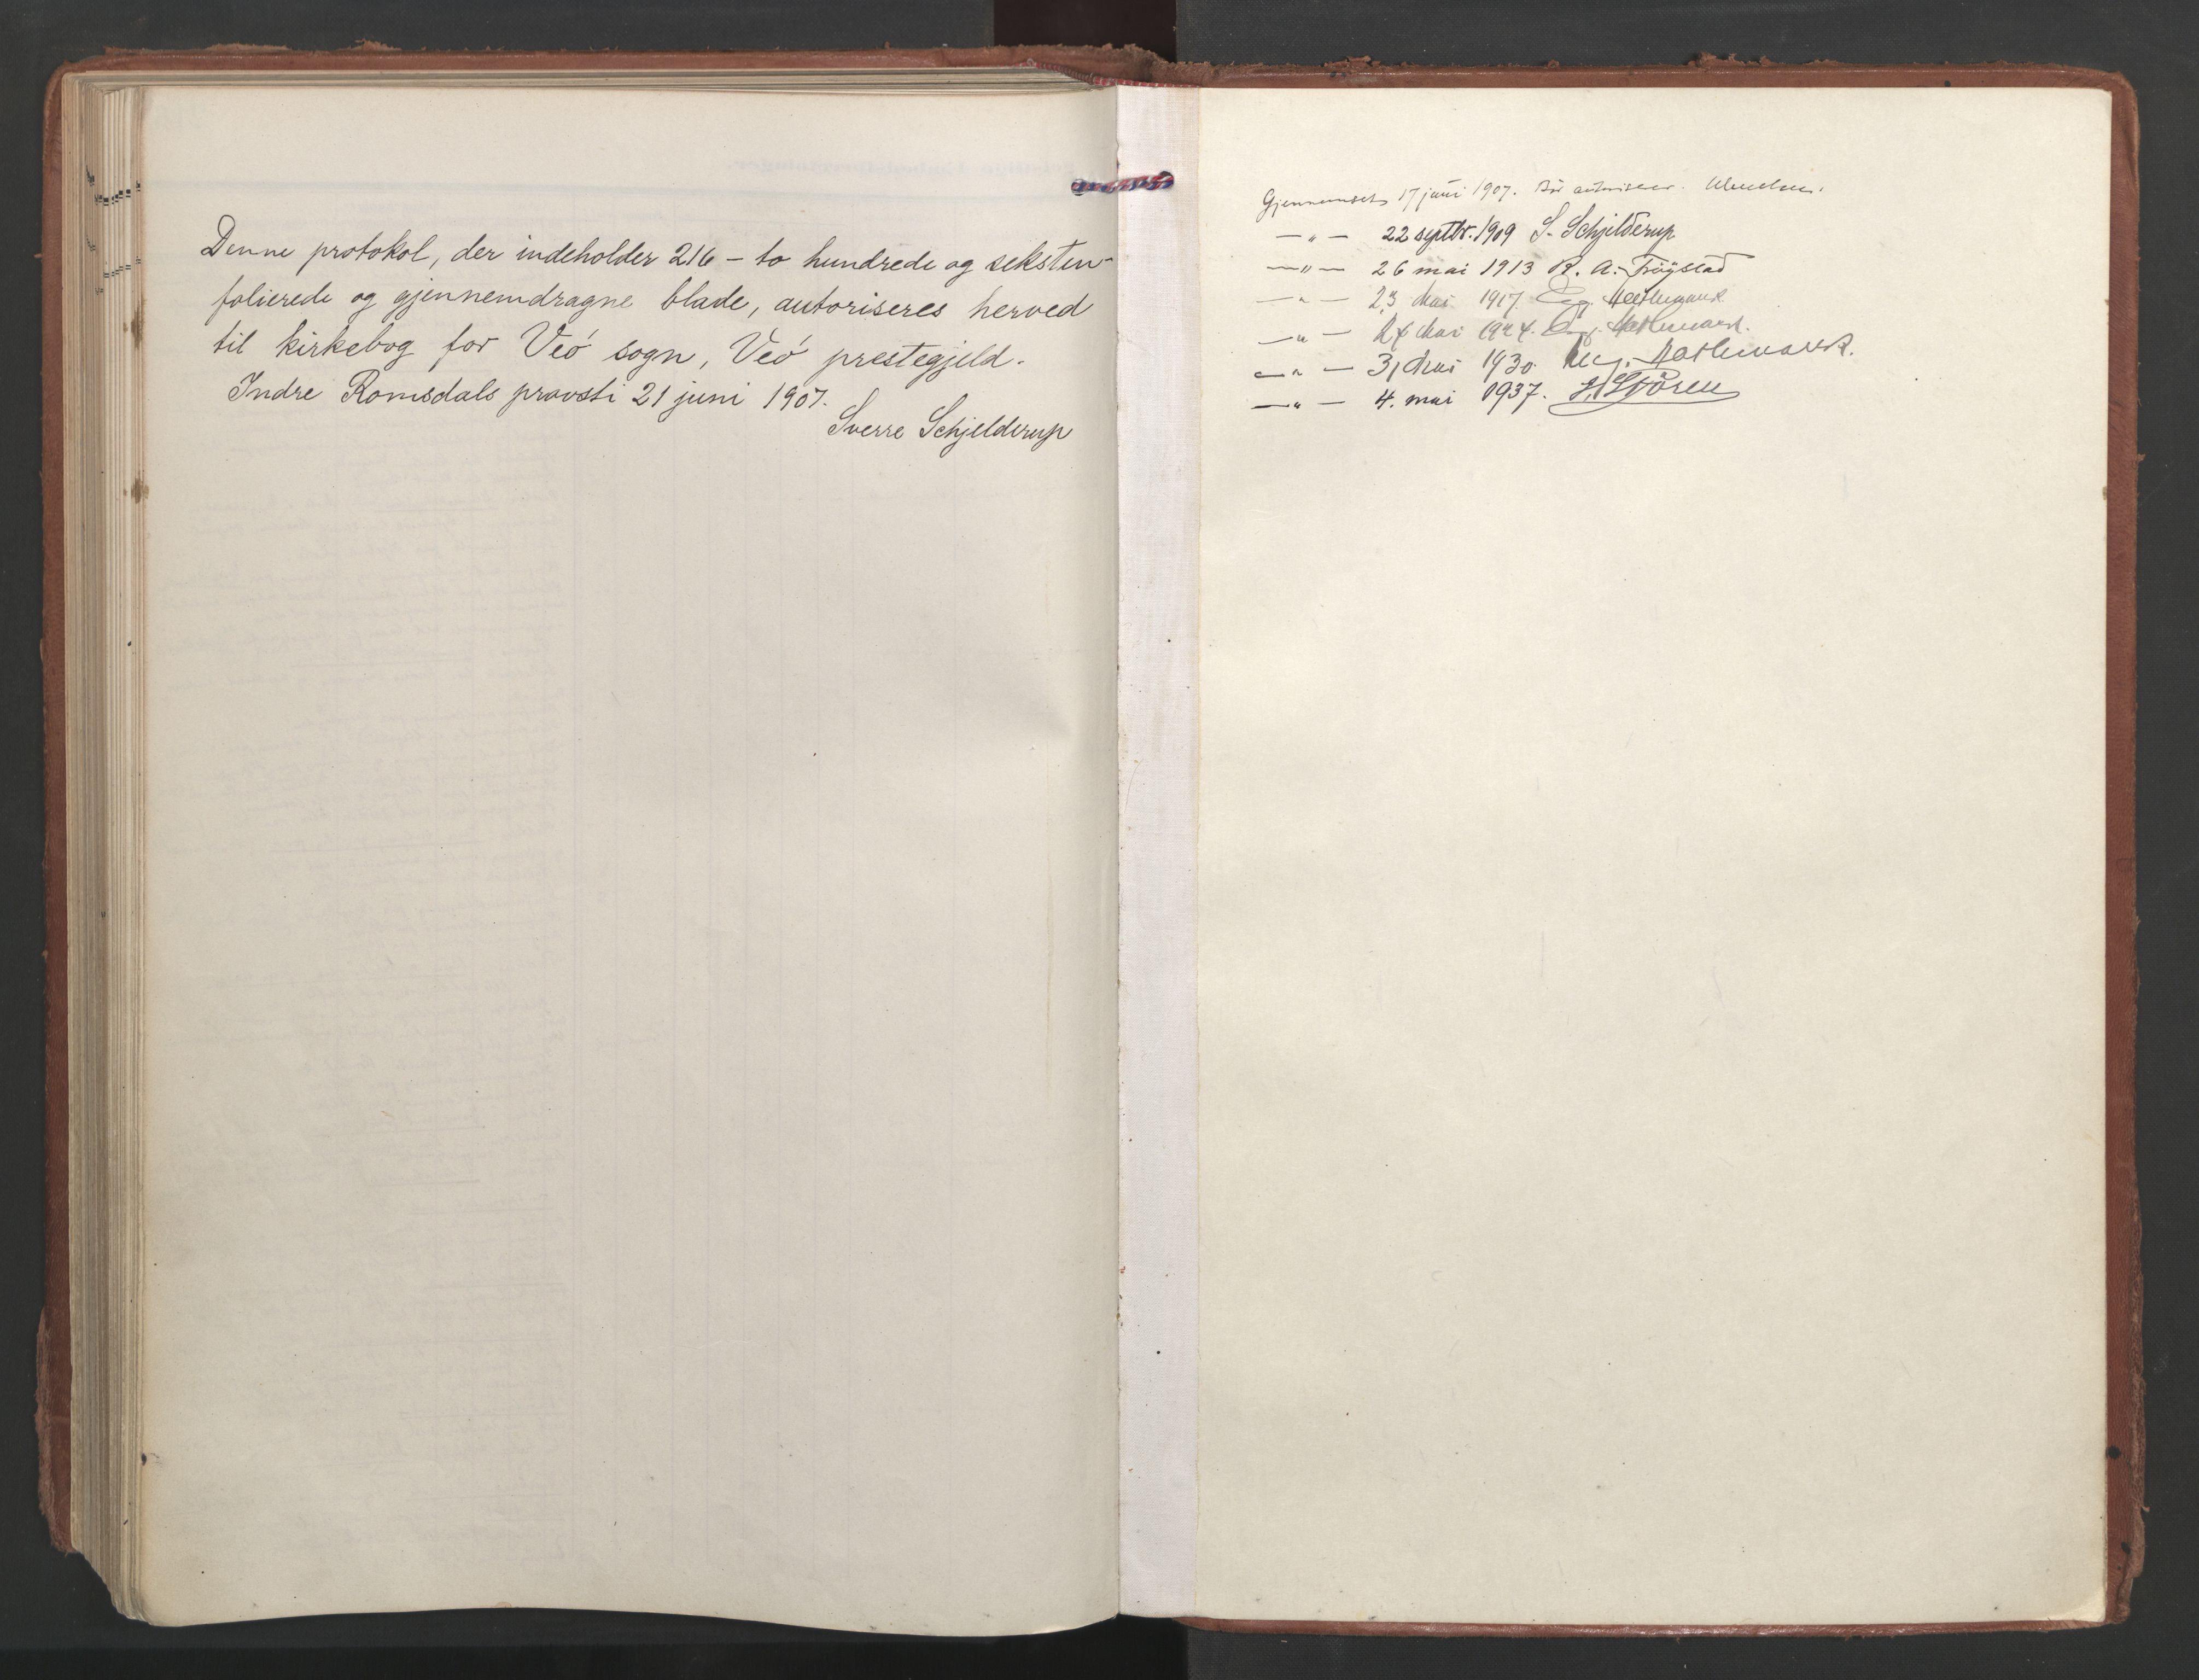 Denne protokol, der indeholder 216 – to hundrede og seksten –
folierede og gjennemdragne blade, autoriseres herved
til kirkebog for Veø sogn, Veø prestegjeld.
Indre Romsdals provsti 21 juni 1907.
Sverre Schjelderup
Gjennemset 17 juni 1907. Bør autoriseres.
—"— 22 septbr. 1909 S. Schjelderup
—"— 26 mai 1913 R. A. Frøystad
—"— 23 Mai 1917.
—"— 24 Mai 1924.
—"— 31 Mai 1930.
—"— 4. mai 1937. H. Støren